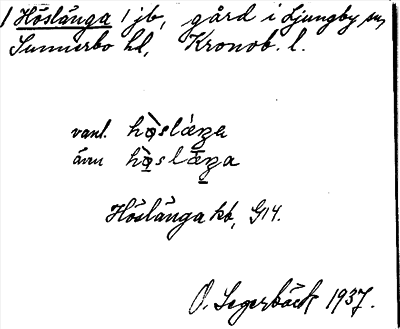 1 Höslånga 1 jb, gård i Ljungby sn,
Sunnerbo hd, Kronob. l.
vanl.
även
Höslånga kb, G14.
O. Segerbäck 1937.